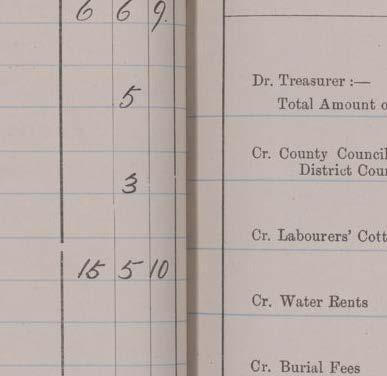 6 6 9.
5
3
15 5 10
Dr. Treasurer :—
Total Amount o
Cr. County Council
District Cour
Cr. Labourers' Cott
Cr. Water Rents
Cr. Burial Fees